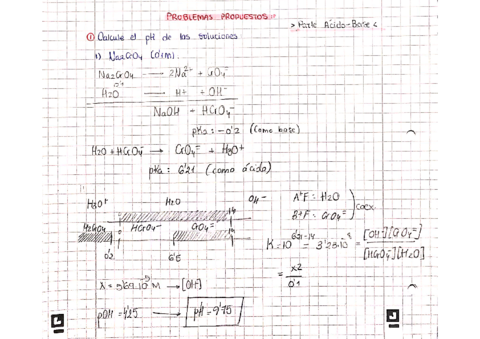 PROBLEMAS PROPUESTOS
> Parte Ácido-Base <
① Calcule el pH de las soluciones
1) Na2CrO4 (0'1M)
Na2CrO4 → 2Na2+ + CrO4=
0'1
H2O → H+ + OH-
NaOH + HCrO4-
pKa: -0'2 (como base)
H2O + HCrO4- → CrO4= + H3O+
pKa: 6'21 (como ácido)
H3O+ H2O OH-
H2CrO4 HCrO4- CrO4=
14
14
0'2 6'5
A+F: H2O
B+F: CrO4=
coex.
[OH-][CrO4=]
[HCrO4-][H2O]
= x2
0'1
→ [OH-]
pOH = 4'25 → pH = 9'75